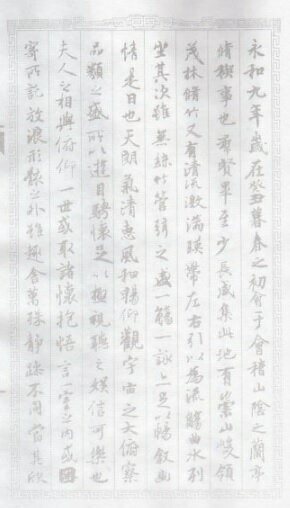 永和九年歲在癸丑暮春之初會于會稽山陰之蘭亭
脩稧事也羣賢畢至少長咸集此地有崇山峻領
茂林脩竹又有清流激湍暎帶左右引以為流觴曲水列
坐其次雖無絲竹管弦之盛一觴一詠亦足以暢敘幽
情是日也天朗氣清惠風和暢仰觀宇宙之大俯察
品類之盛所以遊目騁懷足以極視聽之娛信可樂也
夫人之相與俯仰一世或取諸懷抱悟言一室之內或因
寄所託放浪形骸之外雖趣舍萬殊靜躁不同當其欣